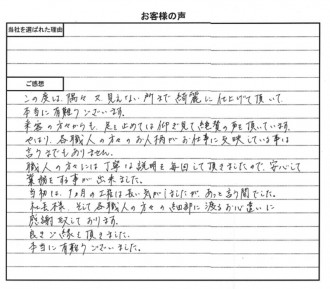 お客様の声
当社を選ばれた理由
ご感想
この度は、隅々 又 見えない所まで 綺麗に仕上げて頂いて、
本当に有難うございます。
来客の方々からも、足を止めては仰ぎ見て絶賛の声を頂いています。
やはり、各職人の方々のお人柄がお仕事に反映している事は
言うまでもありません。
職人の方々には丁寧な説明を毎回して頂きましたので、安心して
業務をする事が出来ました。
当初は、1ヵ月の工程は長い気がしましたが、あっと言う間でした。
社長様、そして各職人の方々の細部に渡るお心遣いに
感謝致しております。
良きご縁を頂きました。
本当に有難うございました。